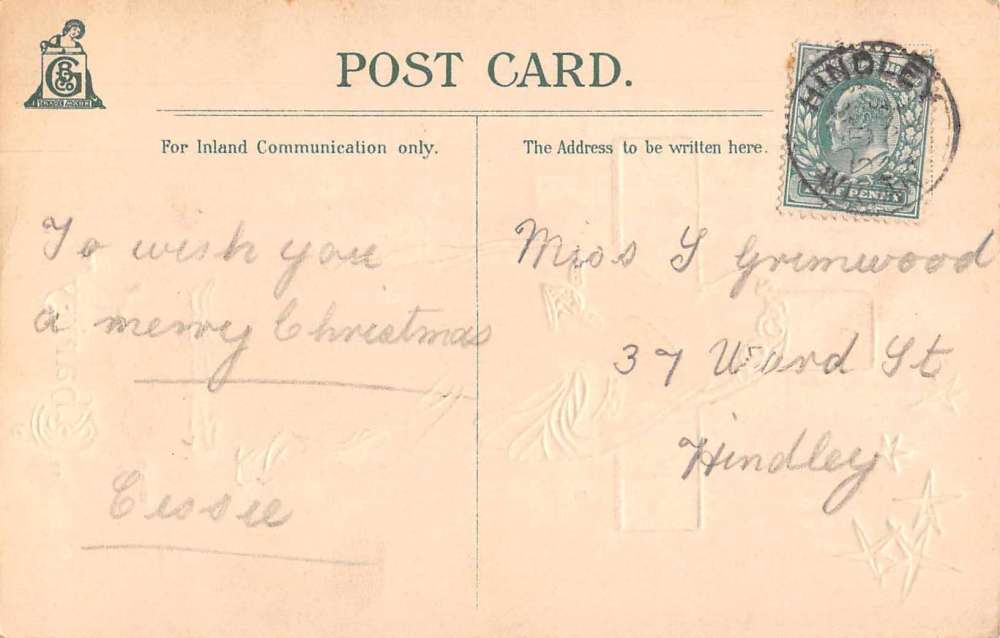 POST CARD.
For Inland Communication only.
The Address to be written here.
HINDLEY
TRADE MARK
To wish you
a merry Christmas
Cissie
Miss S Grimwood
37 Ward St
Hindley